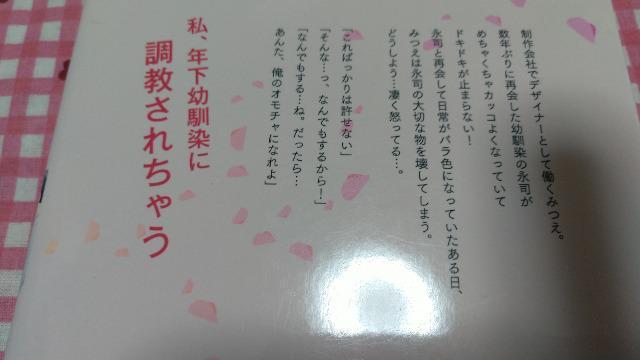 制作会社でデザイナーとして働くみつえ。
数年ぶりに再会した幼馴染の永司が
めちゃくちゃカッコよくなっていて
ドキドキが止まらない！
永司と再会して日常がバラ色になっていたある日、
みつえは永司の大切な物を壊してしまう。
どうしよう…凄く怒ってる…。
「こればっかりは許せない」
「そんな…っ、なんでもするから！」
「なんでもする…ね。だったら…
あんた、俺のオモチャになれよ」
私、年下幼馴染に
調教されちゃう